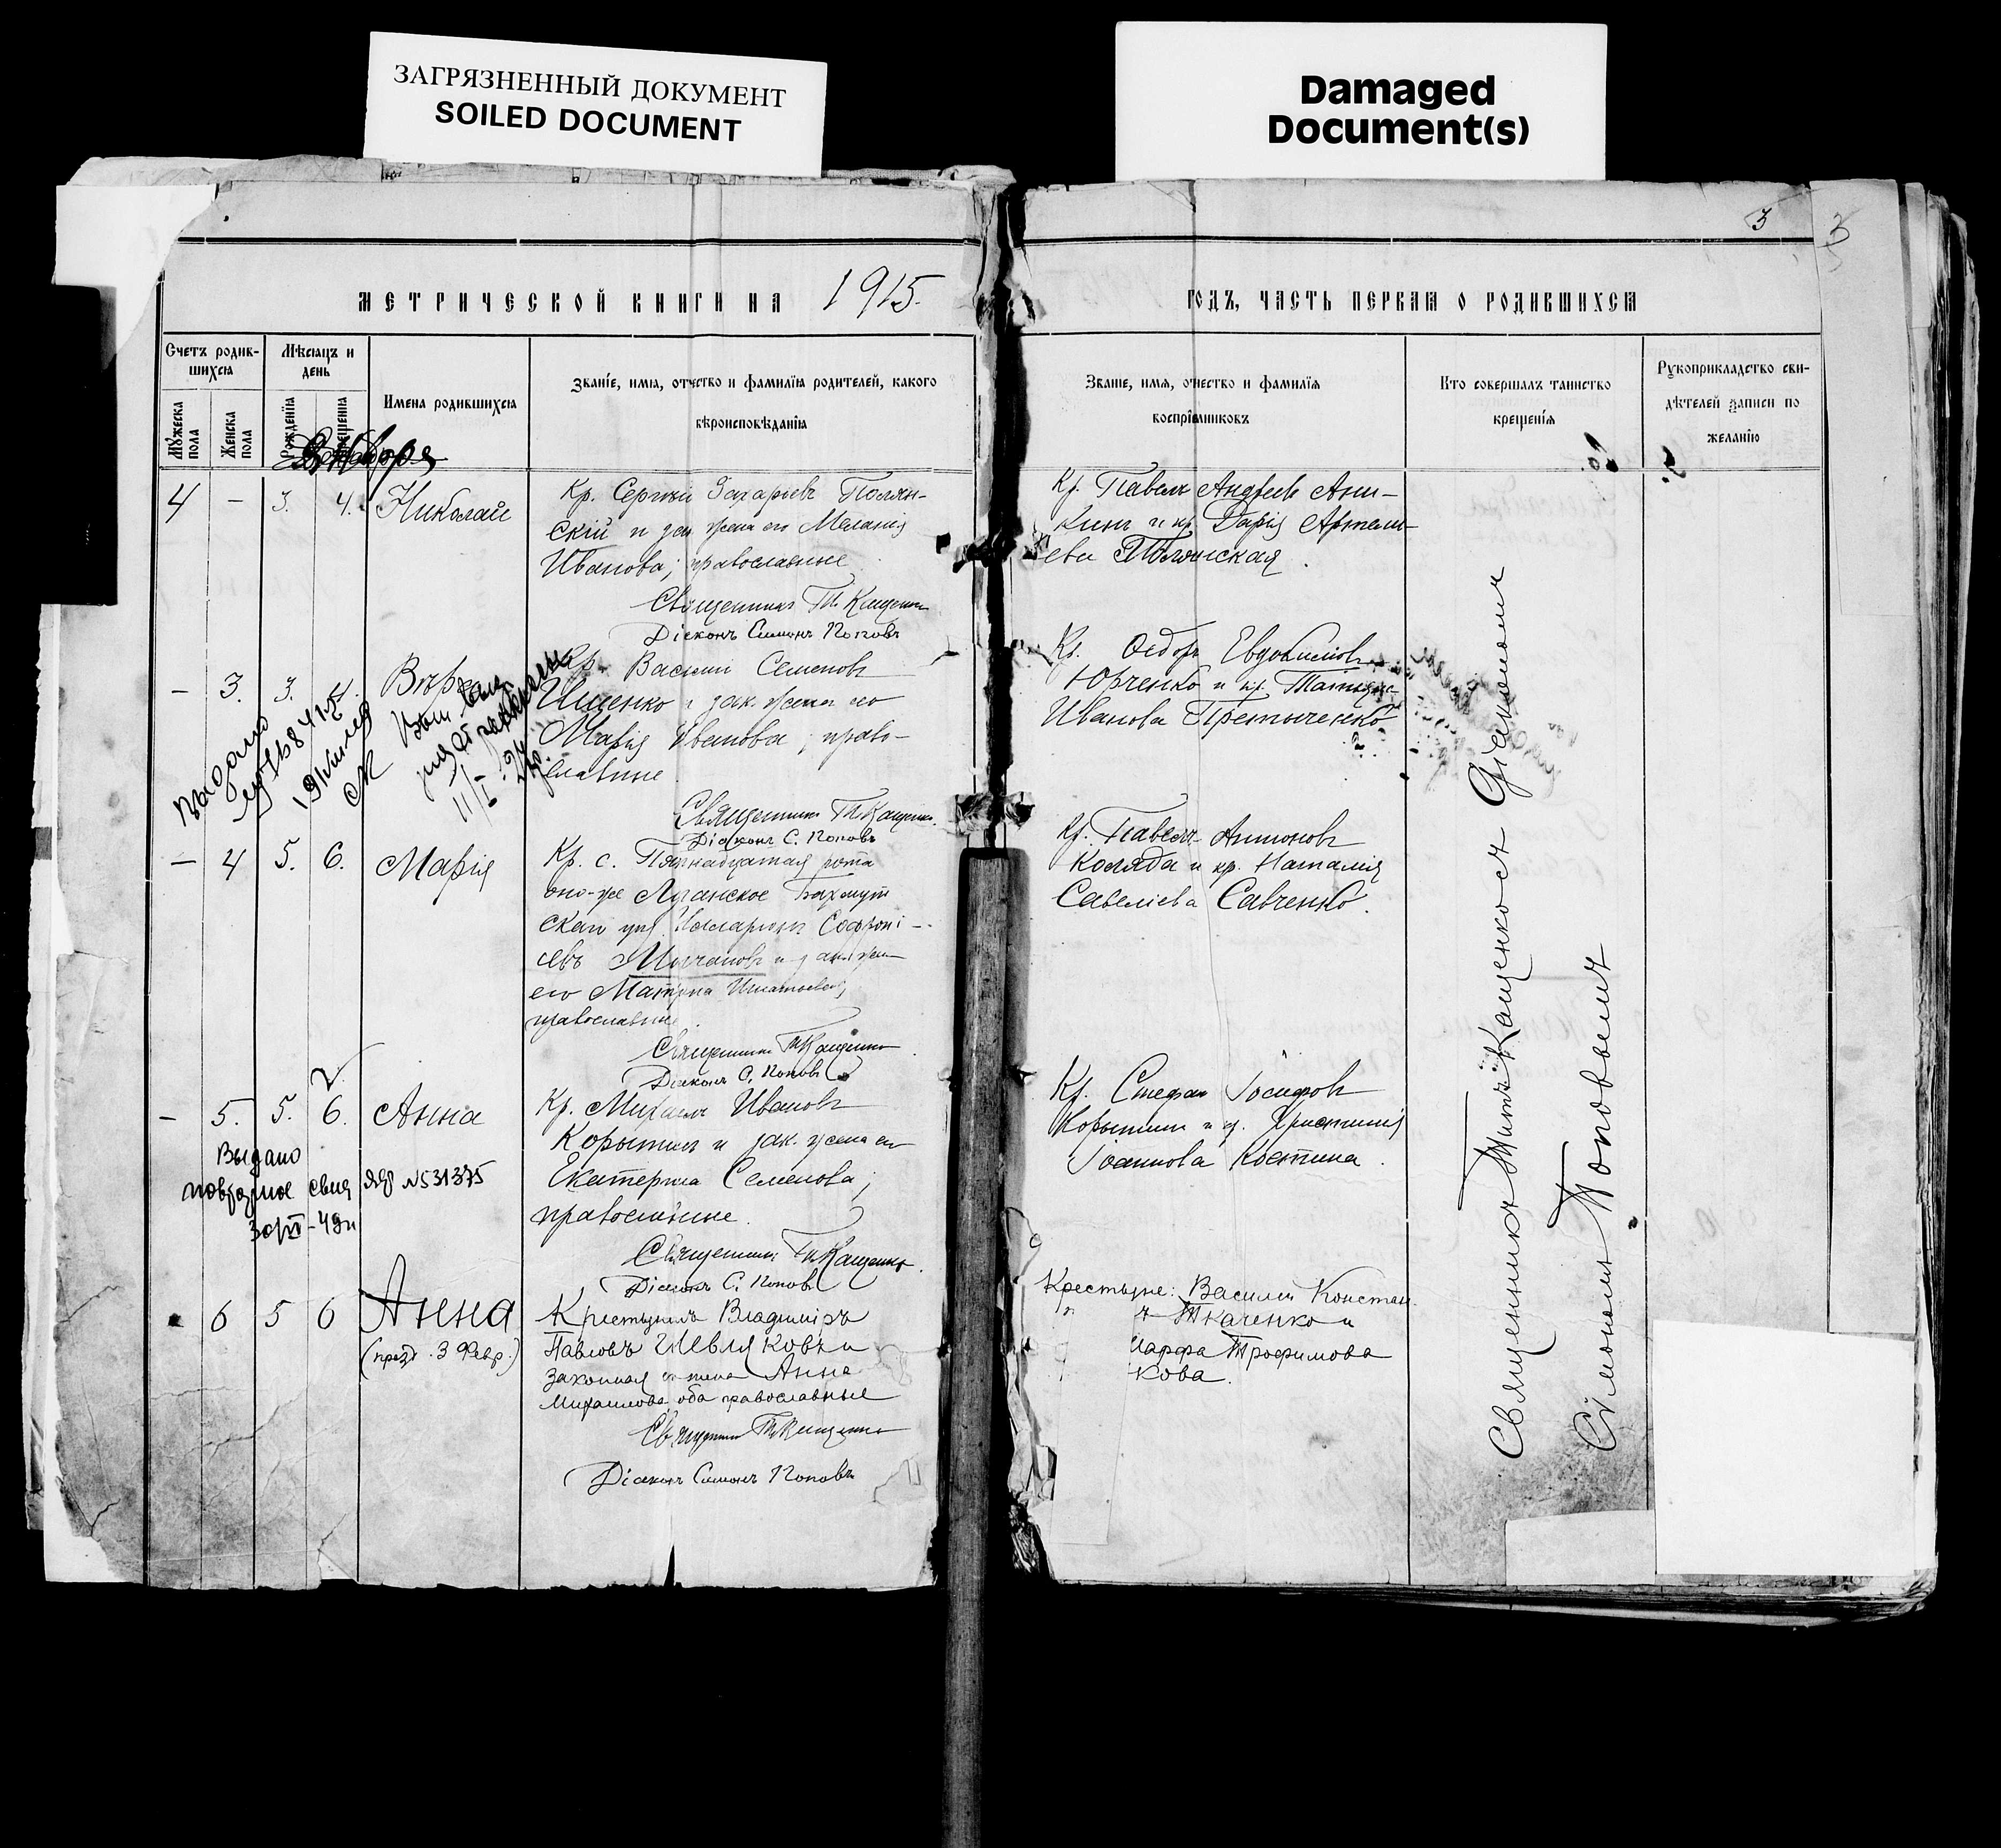 ЗАГРЯЗНЕННЫЙ ДОКУМЕНТ
SOILED DOCUMENT
Damaged
Document(s)
3
3
МЕТРИЧЕСКОЙ КНИГИ НА 1915.
ГОДЪ, ЧАСТЬ ПЕРВАЯ О РОДИВШИХСЯ
Счетъ родив-
шихся
Мужеска пола
Женска пола
Мѣсяцъ и
день
Рожденія
Крещенія
Имена родившихся
Званіе, имя, отчество и фамилія родителей, какого
вѣроисповѣданія
Званіе, имя, отчество и фамилія
воспріемниковъ
Кто совершалъ таинство
крещенія
Рукоприкладство сви-
дѣтелей записи по
желанію
4 – 3. 4. Николай
Кр. Сергѣй Захаріевъ Полян-
скій и зак. жена его Меланія
Иванова; православные
Священникъ Т. Кащенко
Діаконъ Симонъ Поповъ
Кр. Павелъ Андреевъ Ани-
кинъ и кр. Дарія Артемі-
ева Полянская.
– 3. 3. 4. Вѣра
Выдано
Кр. Василій Семеновъ
Ищенко и зак. жена его
Марія Иванова; право-
славные
Священникъ Т. Кащенко.
Діаконъ С. Поповъ
Кр. Ѳедоръ Евдокимовъ
Юрченко и кр. Татіана
Иванова
– 4 5. 6. Марія
Кр. с. Пятнадцатая рота
оно-же Луганское Бахмут
скаго уѣз. Софроні-
евъ и зак. жена
его Матрона Игнатьева;
православные.
Священникъ Т. Кащенко
Діаконъ С. Поповъ
Кр. Павелъ Антоновъ
Коляда и кр. Наталія
Савеліева Савченко.
– 5. 5. 6. Анна
Выдано
повторное свид
ЯЯ № 531375
Кр. Михаилъ Ивановъ
Корытинъ и зак. жена его
Екатерина Семенова;
православные.
Священникъ Т. Кащенко.
Діаконъ С. Поповъ
Кр. Стефанъ Іосифовъ
Корытинъ и кр. Христина
Іоаннова Костина.
6 5 6 Анна
(празд. 3 Февр.)
Крестьянинъ Владиміръ
Павловъ Шевляковъ и
законная его жена Анна
Михаилова, оба православные
Священникъ Т. Кащенко
Діаконъ Симонъ Поповъ
Крестьяне: Василій Констан
Ткаченко и
Марфа Трофимова
кова.
Священникъ Титъ Кащенко съ Діакономъ
Симономъ Поповымъ